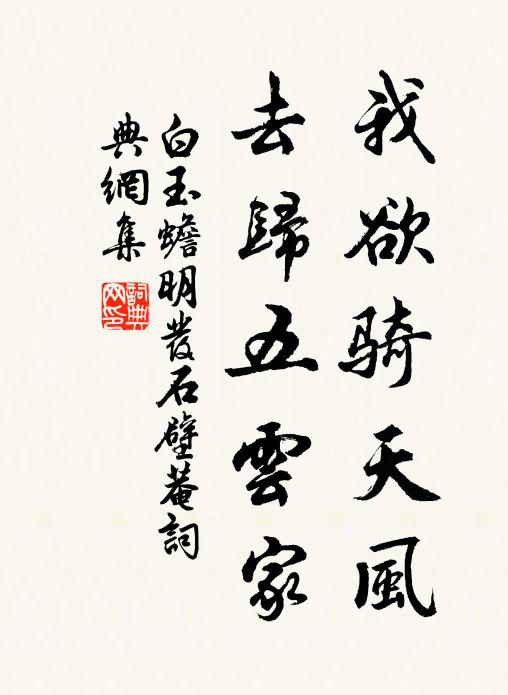 我欲骑天風
去歸五雲家
白玉蟾明發石壁菴詞
典網集
詞典
网印